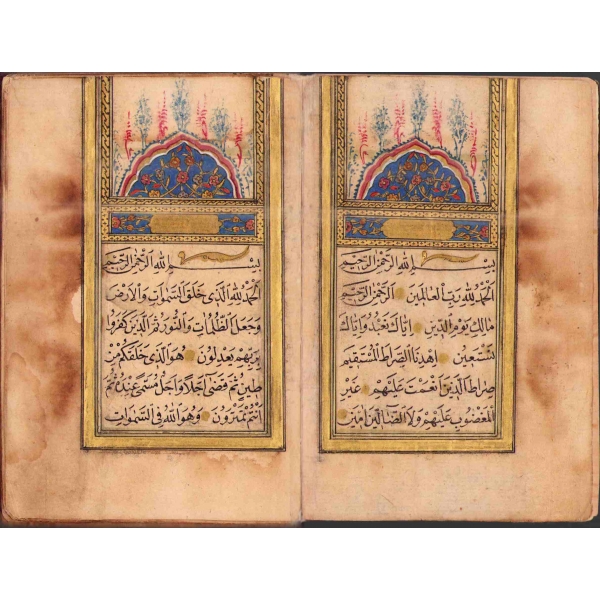 بِسْمِ اللهِ الرَّحْمٰنِ الرَّحِيمِ
اَلْحَمْدُ لِلهِ رَبِّ الْعَالَمِينَ الرَّحْمٰنِ الرَّحِيمِ
مَالِكِ يَوْمِ الدِّينِ اِيَّاكَ نَعْبُدُ وَاِيَّاكَ
نَسْتَعِينُ اِهْدِنَا الصِّرَاطَ الْمُسْتَقِيمَ
صِرَاطَ الَّذِينَ اَنْعَمْتَ عَلَيْهِمْ غَيْرِ
الْمَغْضُوبِ عَلَيْهِمْ وَلَا الضَّالِّينَ اٰمِينَ
بِسْمِ اللهِ الرَّحْمٰنِ الرَّحِيمِ
اَلْحَمْدُ لِلهِ الَّذِي خَلَقَ السَّمٰوَاتِ وَالْاَرْضَ
وَجَعَلَ الظُّلُمَاتِ وَالنُّورَ ثُمَّ الَّذِينَ كَفَرُوا
بِرَبِّهِمْ يَعْدِلُونَ هُوَ الَّذِي خَلَقَكُمْ مِنْ
طِينٍ ثُمَّ قَضٰى اَجَلًا وَاَجَلٌ مُسَمًّى عِنْدَهُ ثُمَّ
اَنْتُمْ تَمْتَرُونَ وَهُوَ اللهُ فِي السَّمٰوَاتِ